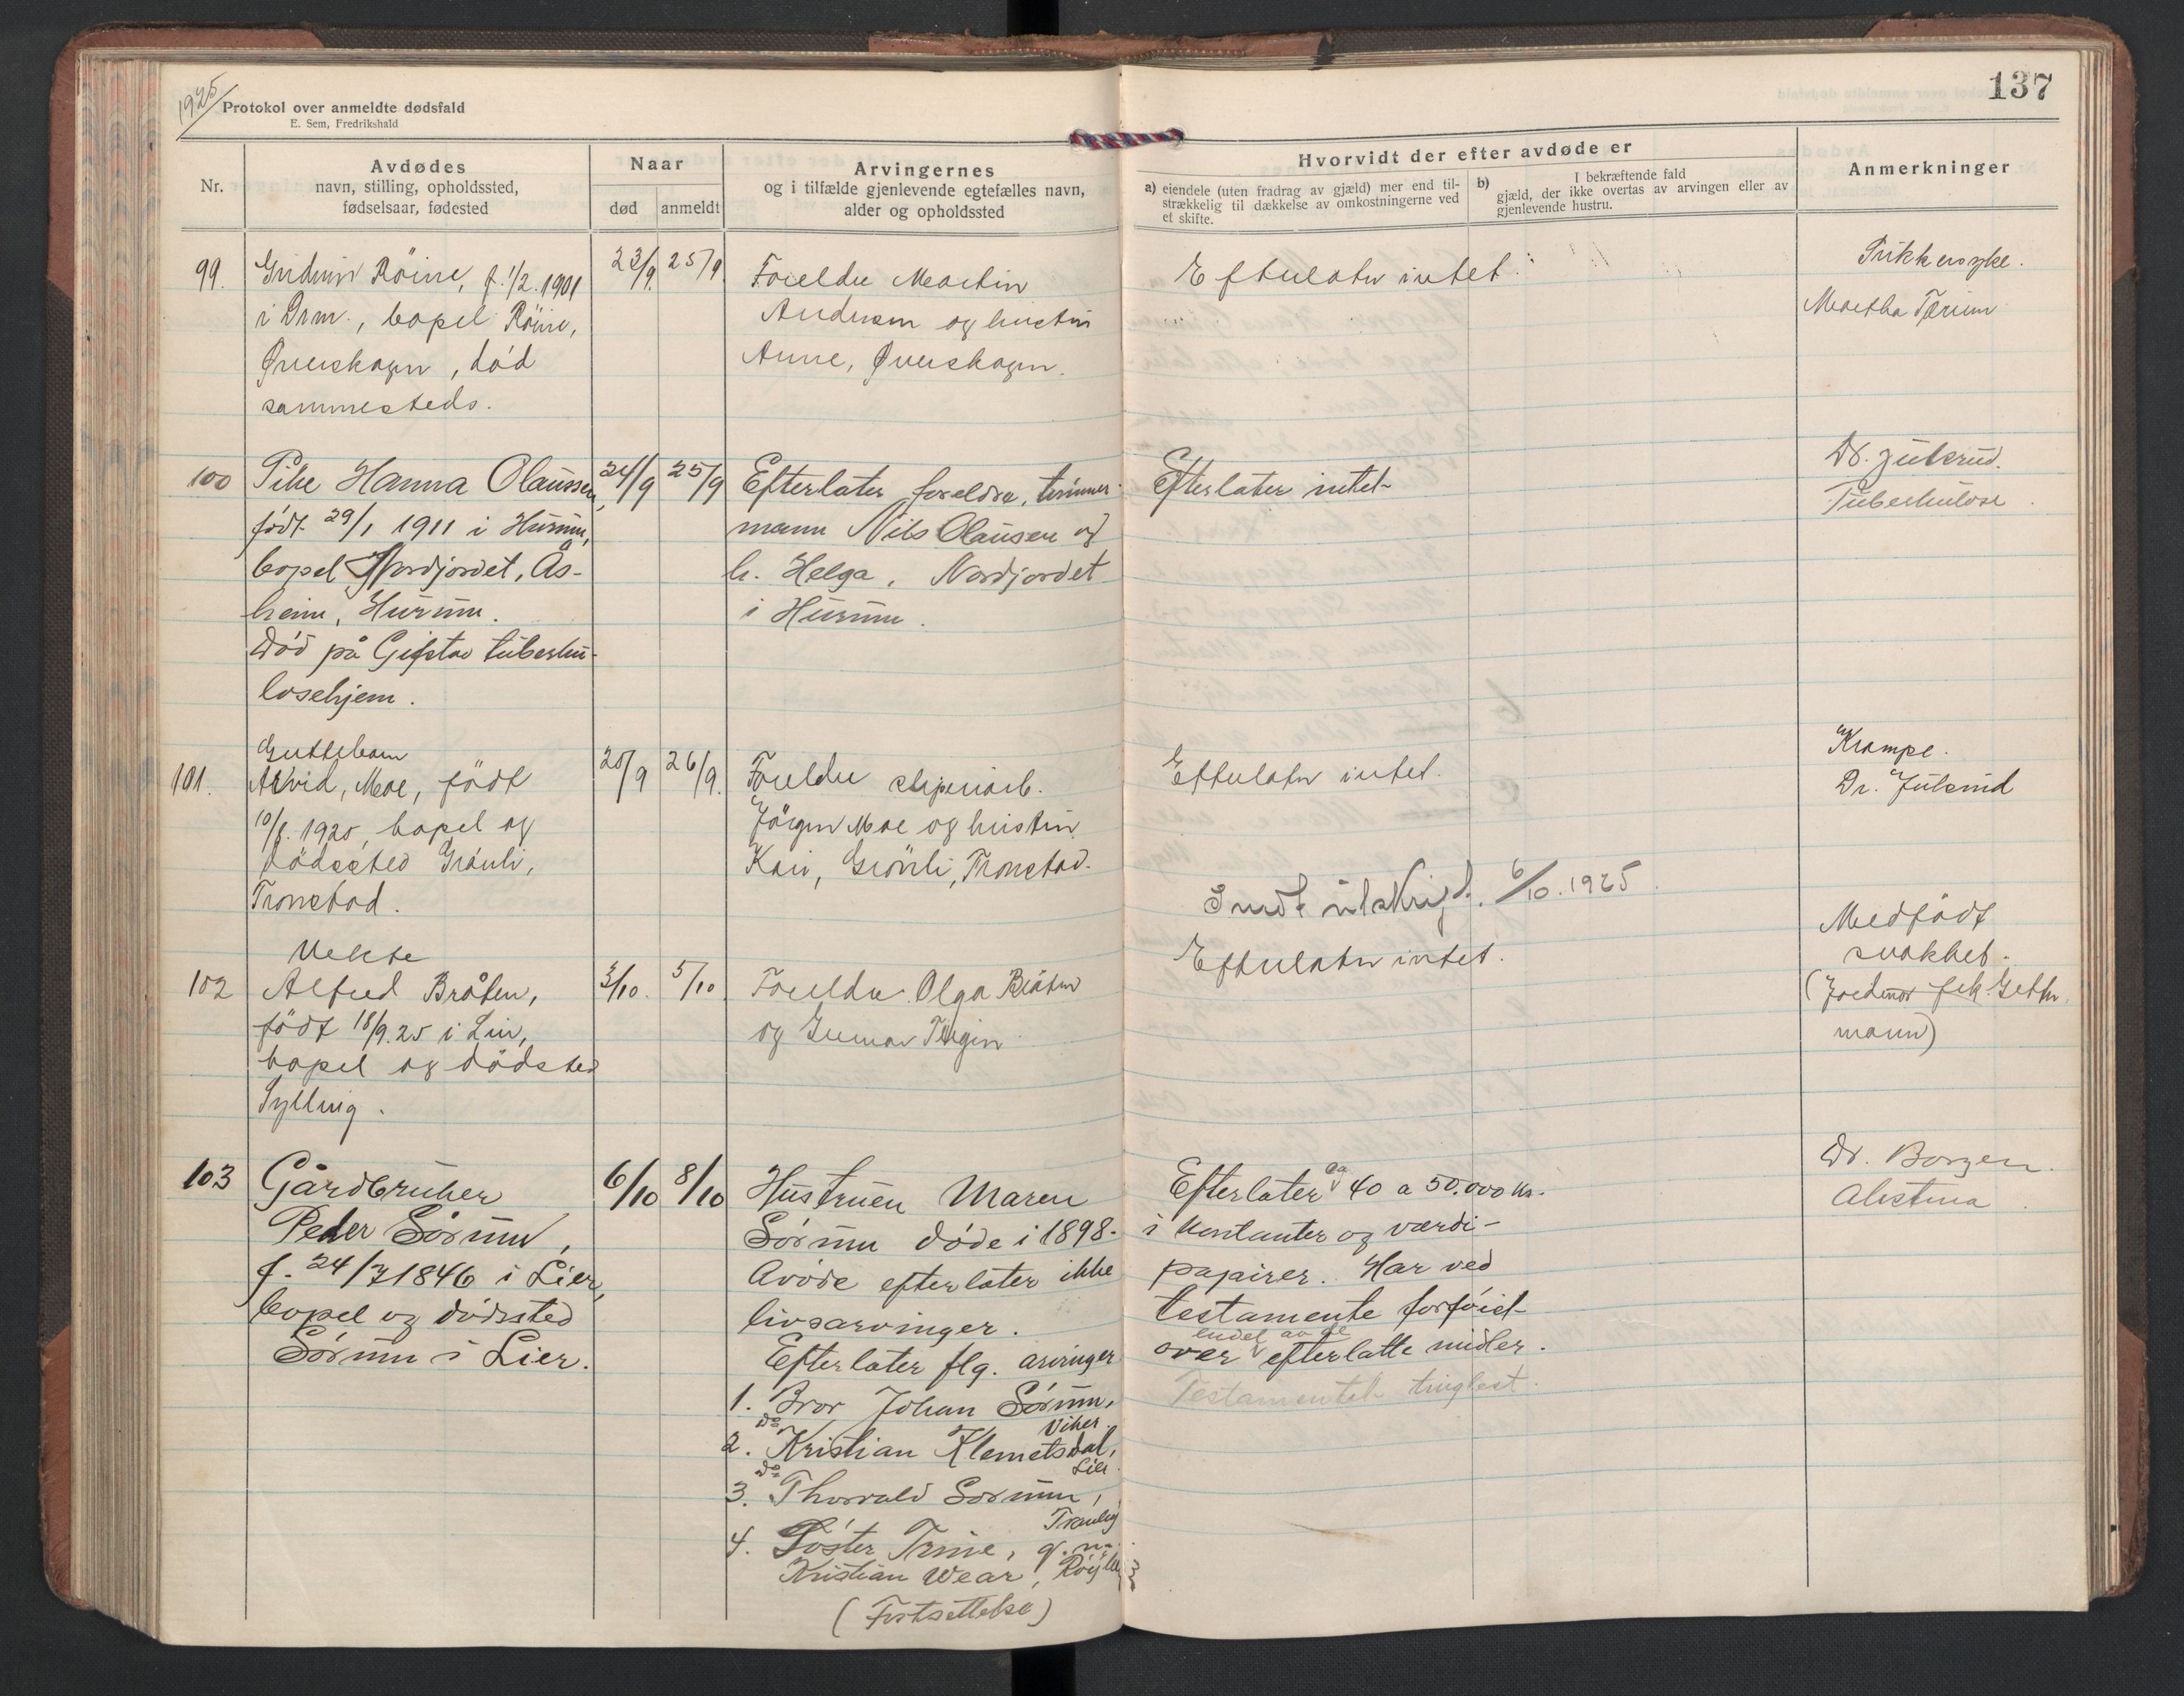 1925
137
Protokol over anmeldte dødsfald
E. Sem, Fredrikshald
Nr.
Avdødes
navn, stilling, opholdssted,
fødselsaar, fødested
Naar
død
anmeldt
Arvingernes
og i tilfælde gjenlevende egtefælles navn,
alder og opholdssted
Hvorvidt der efter avdøde er
a) eiendele (uten fradrag av gjæld) mer end til-
strækkelig til dækkelse av omkostningerne ved
et skifte.
b) I bekræftende fald
gjæld, der ikke overtas av arvingen eller av
gjenlevende hustru.
Anmerkninger
99.
Röine, f. 1/2. 1901
i Drm., bopel Röine,
Øverskogen, död
sammesteds.
23/9.
25/9
Foreldre Martin
Andersen og hustru
Anne, Øverskogen.
Efterlater intet.
Martha
100
Pike Hanna Olaussen,
født 29/1 1911 i Hurum,
bopel Nordjordet, Ås-
heim, Hurum.
Död på Gifstad tuberku-
losehjem.
24/9
25/9
Efterlater foreldre, tømmer-
mann Nils Olausen og
h. Helga, Nordjordet
i Hurum.
Efterlater intet-
Dr. Julsrud.
Tuberkulose.
101.
Guttebarn
Arvid, Moe, födt
10/8. 1925, bopel og
dödssted Grönli,
Tronstad.
25/9
26/9.
Foreldre sliperiarb.
Jörgen Moe og hustru
Kari, Grönli, Tronstad.
Efterlater intet.
Krampe.
Dr. Julsrud
Sendt utskrift. 6/10. 1925.
102
Alfred Bråten,
födt 18/9. 25 i Lier,
bopel og dödsted
Sylling.
3/10.
5/10
Foreldre Olga Bråten
og Gunnar
Efterlater intet.
Medfödt
svakhet.
(Jordmor frk. Gethr.
mann)
103
Gårdbruker
Peder Sörum,
f. 24/7 1846 i Lier,
bopel og dödssted
Sörum i Lier.
6/10
8/10
Hustruen Maren
Sörum døde i 1898.
Avöde efterlater ikke
livsarvinger.
Efterlater flg. arvinger
1. Bror Johan Sörum,
Viker.
2. do Kristian Klemetsdal,
Lier.
3. do Thorvald Sörum,
Tranby
4. Söster Trine, g. m.
Kristian Wear,
(Fortsettelse)
Efterlater ca 40 a 50.000 kr.
i kontanter og værdi-
papirer. Har ved
testamente forföiet
over endel av de efterlatte midler.
Testamentet tinglest.
Dr. Borgen.